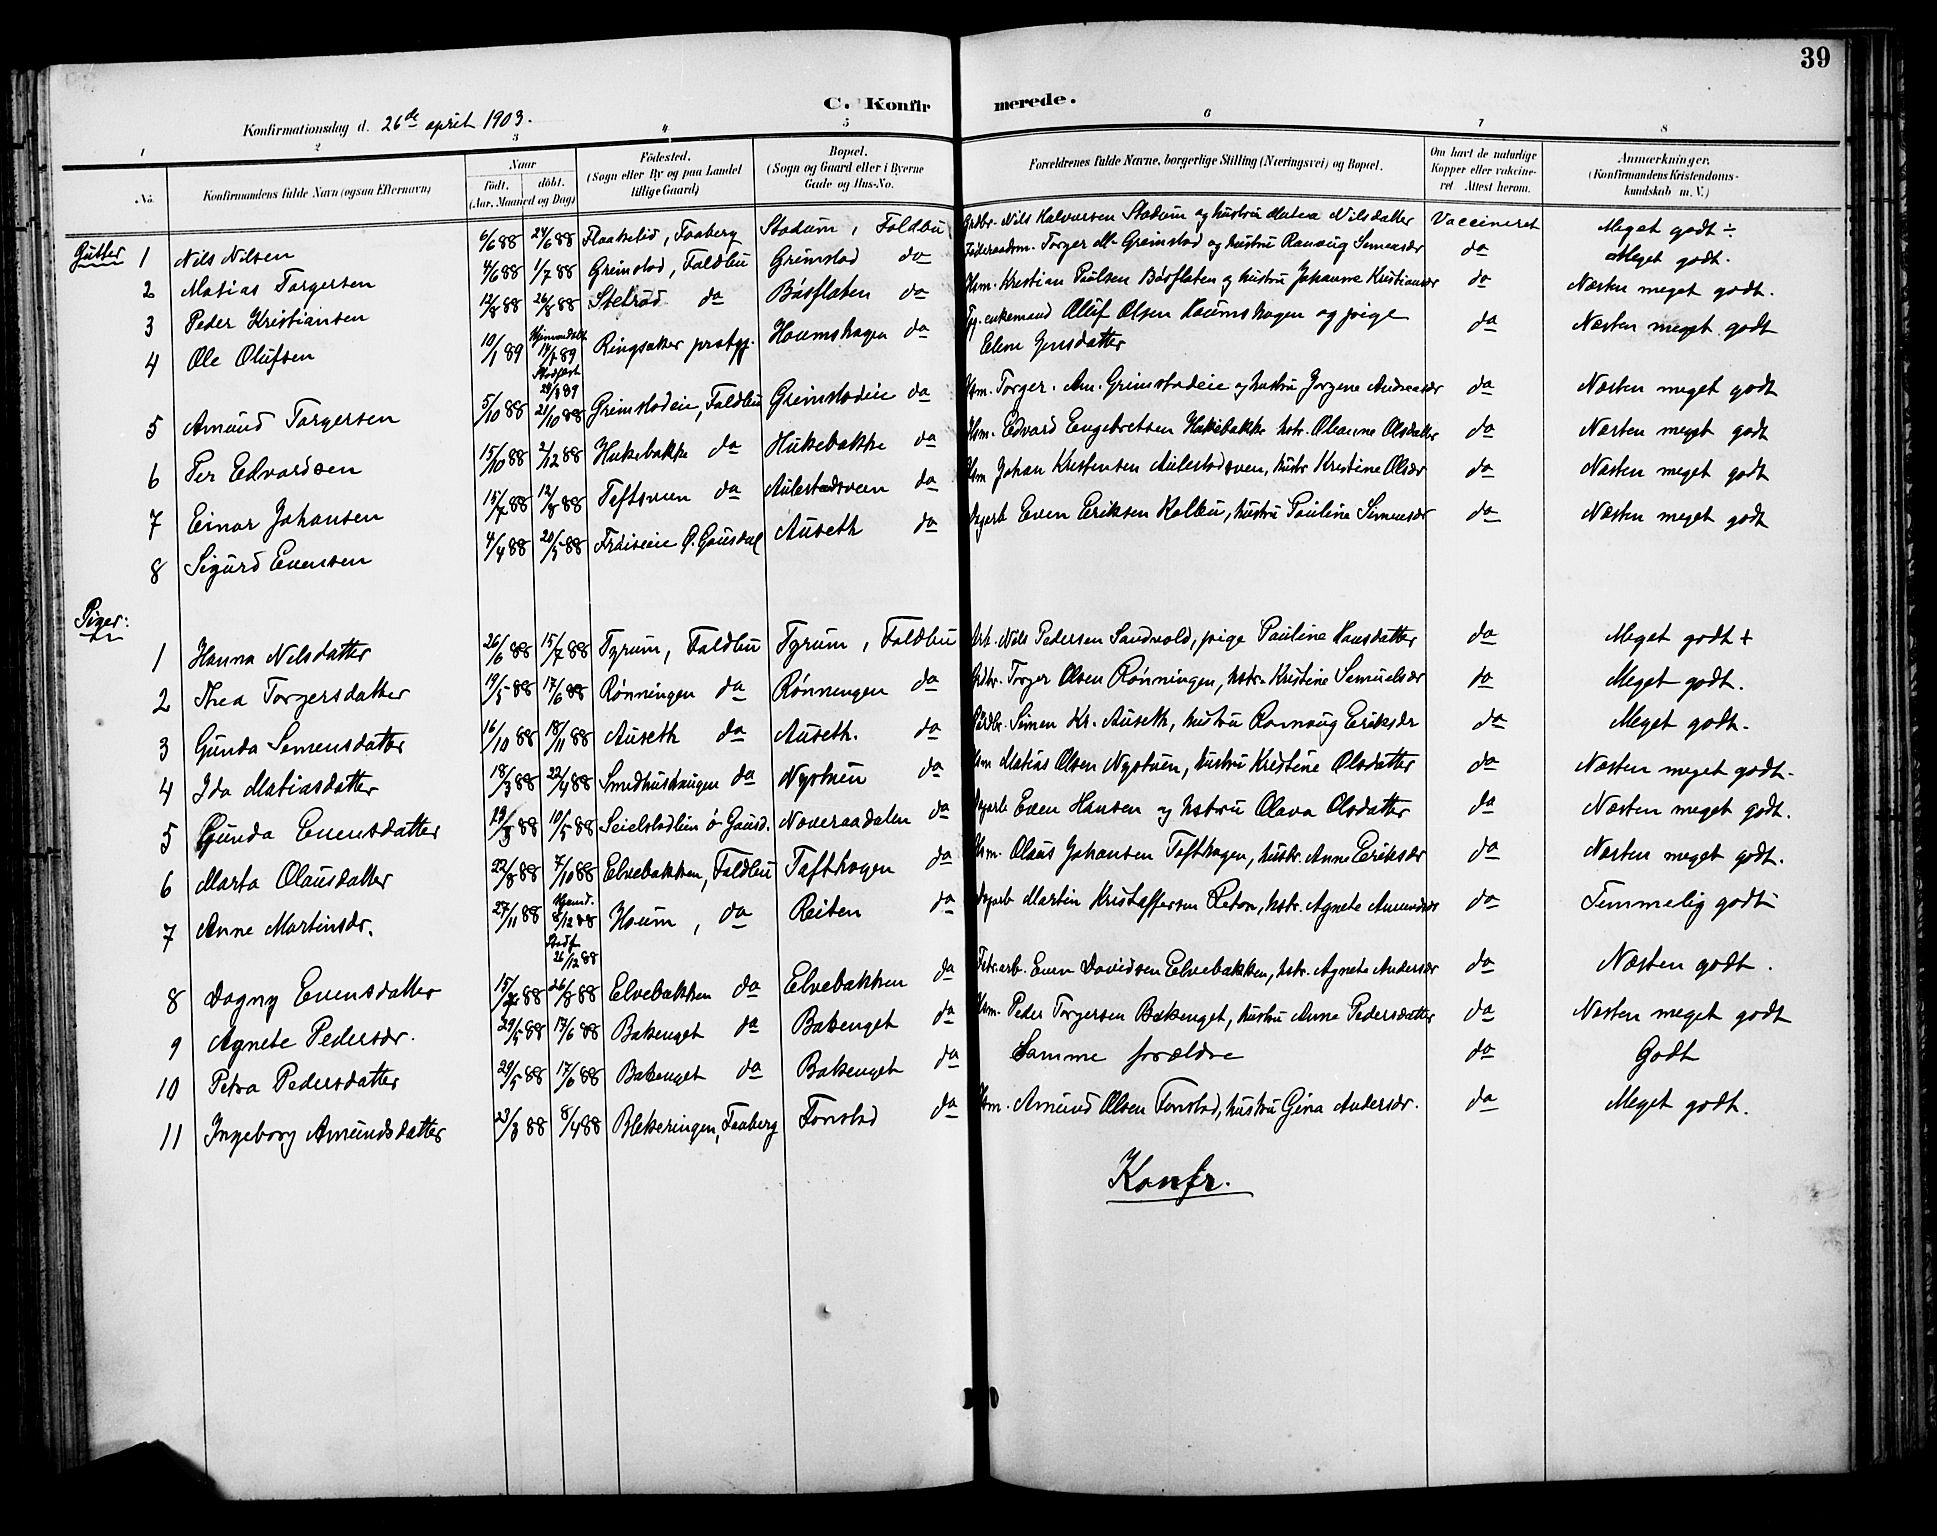 39
C. Konfirmerede.
Konfirmationsdag d. 26de april 1903.
1 2 3 4 5 6 7 8
No. Konfirmandens fulde Navn (ogsaa Efternavn) Naar Födt. döbt. (Aar, Maaned og Dag) Födested. (Sogn eller By og paa Landet tillige Gaard) Bopæl. (Sogn og Gaard eller i Byerne Gade og Hus-No. Forældrenes fulde Navne, borgerlige Stilling (Næringsvei) og Bopæl. Om havt de naturlige Kopper eller vakcineret Attest herom. Anmærkninger. (Konfirmandens Kristendomskundskab m. V.)
Gutter 1 Nils Nilsen 6/6 88 24/6 88 Flaakelid, Faaberg Stadum, Foldbu Grdbr. Nils Halvorsen Stadum og hustru Matea Nilsdatter Vaccineret Meget godt ÷
2 Matias Torgersen 4/6 88 1/7 88 Grimstad, Foldbu Grimstad do Föderaadsm. Torger Grimstad og hustru Ranaug Simensdr do Meget godt.
3 Peder Kristiansen 12/8 88 26/8 88 Stelrud do Båsflaten do Hsm. Kristian Paulsen Båsflaten og hustru Johanne Kristiansdr do Næsten meget godt.
4 Ole Olufsen 10/1 89 Hjemmedöbt 14/1 89 Stadfæst 24/3 89 Ringsaker prstgj. Houmshagen do enkemand Oluf Olsen Houmshagen og pige Eline Jensdatter do Næsten meget godt
5 Amund Torgersen 5/10 88 21/10 88 Grimstadeie, Foldbu Grimstadeie do Hsm. Torger. Am. Grimstadeie og hustru Jorgene Andreasdr do Næsten meget godt
6 Per Edvardsen 15/10 88 2/12 88 Hukebakke do Hukebakke do Hsm. Edvard Engebretsen Hukebakke hstr. Oleanne Olsdatter do Næsten meget godt
7 Einar Johansen 15/7 88 12/8 88 Toftsveen do Aulestadsveen do Hsm Johan Kristensen Aulestadsveen, hustr Kristine Olsdr do Næsten meget godt
8 Sigurd Evensen 4/4 88 20/5 88 Fraiseie Ø. Gausdal Auseth do Dagarb Even Eriksen Kolbu, hustru Pauline Simensdr do Næsten meget godt
Piger:
1 Hanna Nilsdatter 26/6 88 15/7 88 Tyrum, Foldbu Tyrum, Foldbu Arb. Nils Pedersen Sandvold, pige Pauline Hansdatter do Meget godt +
2 Thea Torgersdatter 19/5 88 17/6 88 Rønningen do Rønningen do Grdbr. Torger Olsen Rønningen, hstr. Kristine Semuelsdr do Meget godt.
3 Gunda Simensdatter 16/10 88 18/11 88 Auseth do Auseth. do Gårdbr. Simen Kr. Auseth, hustru Ramoug Eriksdr do Meget godt.
4 Ida Matiasdatter 18/3 88 22/4 88 Smedhushaugen do Nystuen do Hsm Matias Olsen Nystuen, hustru Kristine Olsdatter do Næsten meget godt.
5 Gunda Evensdatter 29/3 88 10/5 88 Seielstadlien ö. Gausd. Noveraadalen do Dagarb Even Hansen og hstru Olava Olsdatter do Næsten meget godt.
6 Marta Olausdatter 22/8 88 7/10 88 Elvebakken, Foldbu Tofthagen do Hsm. Olaus Johansen Tofthagen, hustr. Anne Eriksdr do Næsten meget godt.
7 Anne Martinsdr. 27/11 88 Hjemd. 8/12 88 Stadf 26/12 88 Houm, do Reiten do Dagarb Martin Kristoffersen hstr. Agnete Amundsdr do Temmelig godt
8 Dagny Evensdatter 15/7 88 26/8 88 Elvebakken do Elvebakken do Fabr.arb. Even Davidsen Elvebakken, hstr. Agnete Andersdr do Næsten godt.
9 Agnete Pedersdr. 29/5 88 17/6 88 Bakenget do Bakenget do Hsm. Peder Torgersen Bakenget, hustru Anne Pedersdatter do Næsten meget godt
10 Petra Pedersdatter 29/5 88 17/6 88 Bakenget do Bakenget do Samme forældre do Godt
11 Ingeborg Amundsdatter 23/3 88 8/4 88 Blekeringen, Faaberg Fonstad do Hsm. Amund Olsen Fonstad, hustru Gina Andersdr. do Meget godt.
Konfr.